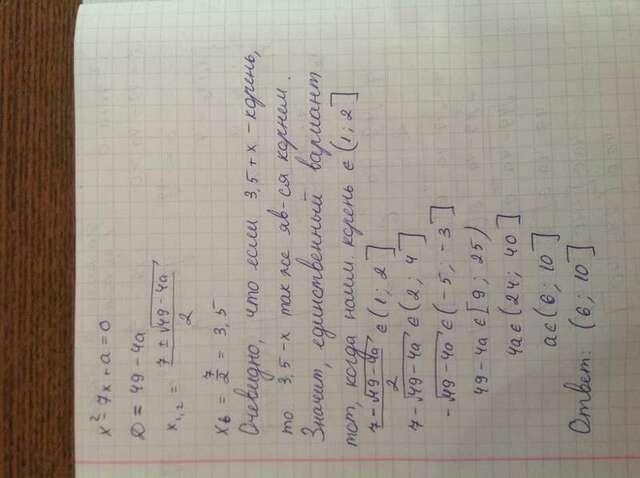 x² - 7x + a = 0
D = 49 - 4a
x₁,₂ = (7 ± √(49 - 4a)) / 2
xв = 7/2 = 3,5
Очевидно, что если 3,5 + x - корень,
то 3,5 - x так же яв-ся корнем.
Значит, единственный вариант
тот, когда наим. корень ∈ (1; 2]
(7 - √(49 - 4a)) / 2 ∈ (1; 2]
7 - √(49 - 4a) ∈ (2; 4]
-√(49 - 4a) ∈ (-5; -3]
49 - 4a ∈ [9; 25)
4a ∈ (24; 40]
a ∈ (6; 10]
Ответ: (6; 10]